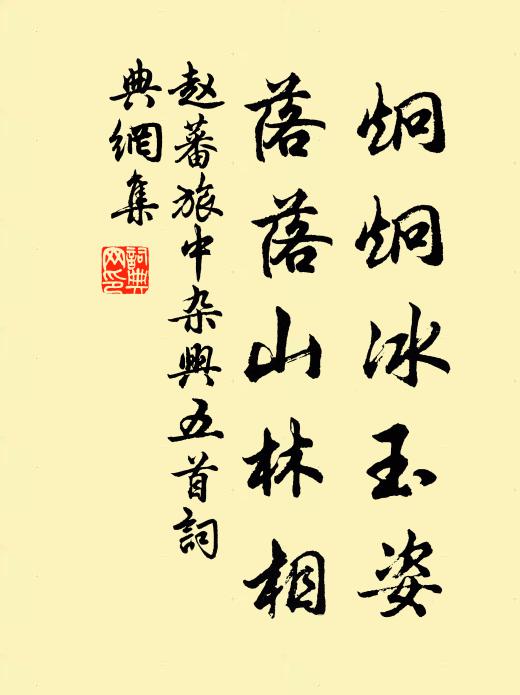 炯炯冰玉姿
落落山林相
赵蕃旅中杂興五首詞
典網集
詞典
网印